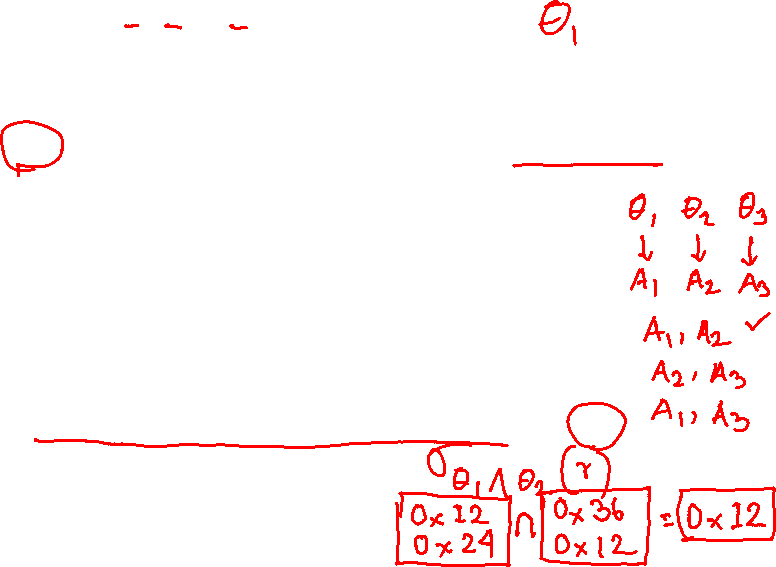 - - - θ₁
θ₁ θ₂ θ₃
↓ ↓ ↓
A₁ A₂ A₃
A₁, A₂ ✓
A₂, A₃
A₁, A₃
σ θ₁ ∧ θ₂ r
0x12 ∩ 0x36 = 0x12
0x24 0x12